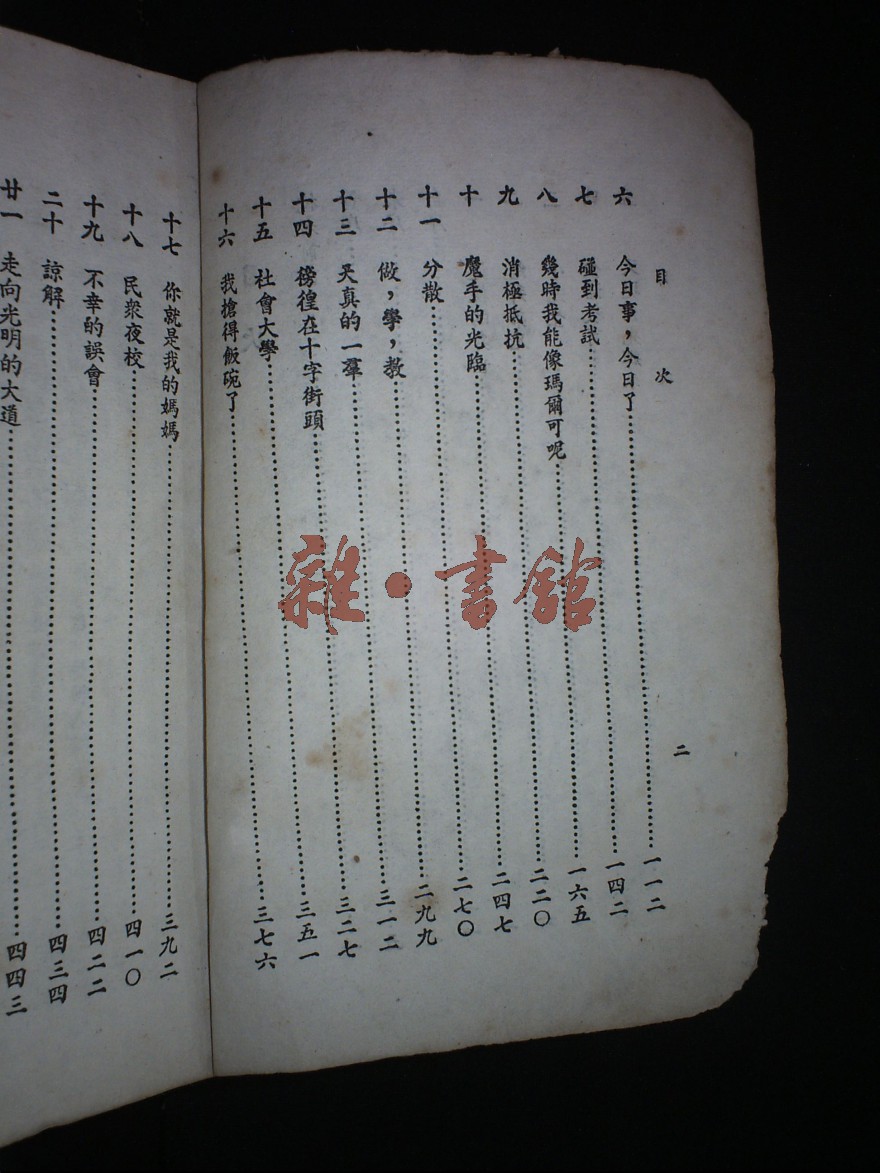 目次 二
六 今日事，今日了……一一二
七 碰到考試……一四二
八 幾時我能像瑪爾可呢……一六五
九 消極抵抗……二二〇
十 魔手的光臨……二四七
十一 分散……二七〇
十二 做，學，教……二九九
十三 天真的一羣……三一二
十四 徬徨在十字街頭……三二七
十五 社會大學……三五一
十六 我搶得飯碗了……三七六
十七 你就是我的媽媽……三九二
十八 民衆夜校……四一〇
十九 不幸的誤會……四二二
二十 諒解……四三四
廿一 走向光明的大道……四四三
雜·書舘